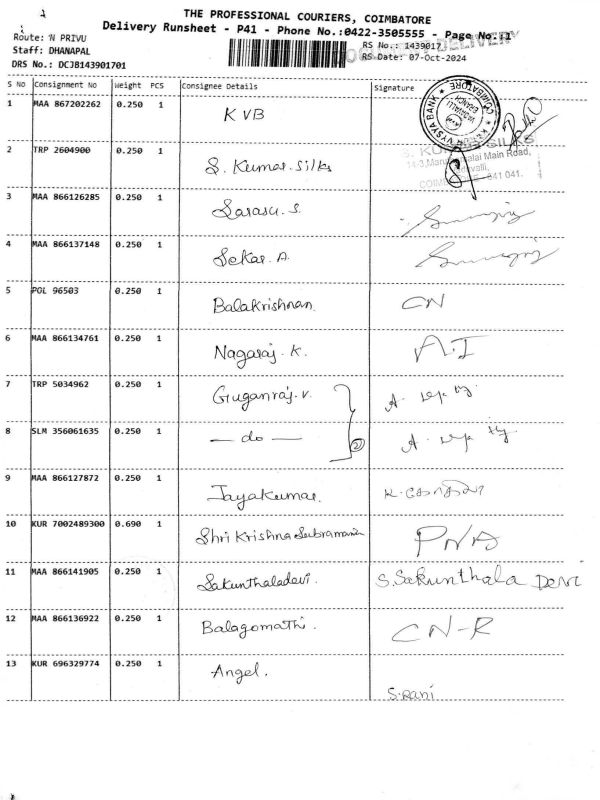 THE PROFESSIONAL COURIERS, COIMBATORE
Delivery Runsheet - P41 - Phone No.:0422-3505555 - Page No.:1
DELIVERY
Route: N PRIVU
RS No.: 1439017
Staff: DHANAPAL
RS Date: 07-Oct-2024
DRS No.: DCJB143901701
S No Consignment No Weight PCS Consignee Details Signature
1 MAA 867202262 0.250 1 KVB
VYSYA BANK COIMBATORE VADAVALLI BRANCH
2 TRP 2604900 0.250 1 S. Kumar. Silks
SILKS
Main Road,
641 041.
3 MAA 866126285 0.250 1 Sarasu. S.
4 MAA 866137148 0.250 1 Sekar. A.
5 POL 96503 0.250 1 Balakrishnan. CN
6 MAA 866134761 0.250 1 Nagaraj. K. A.I
7 TRP 5034962 0.250 1 Guganraj. V.
8 SLM 356061635 0.250 1 — do — 2
9 MAA 866127872 0.250 1 Jayakumar.
10 KUR 7002489300 0.690 1 Shri Krishna Subramanian PNA
11 MAA 866141905 0.250 1 Sakunthaladevi. S. Sakunthala Devi
12 MAA 866136922 0.250 1 Balagomathi. CN-R
13 KUR 696329774 0.250 1 Angel. S. rani